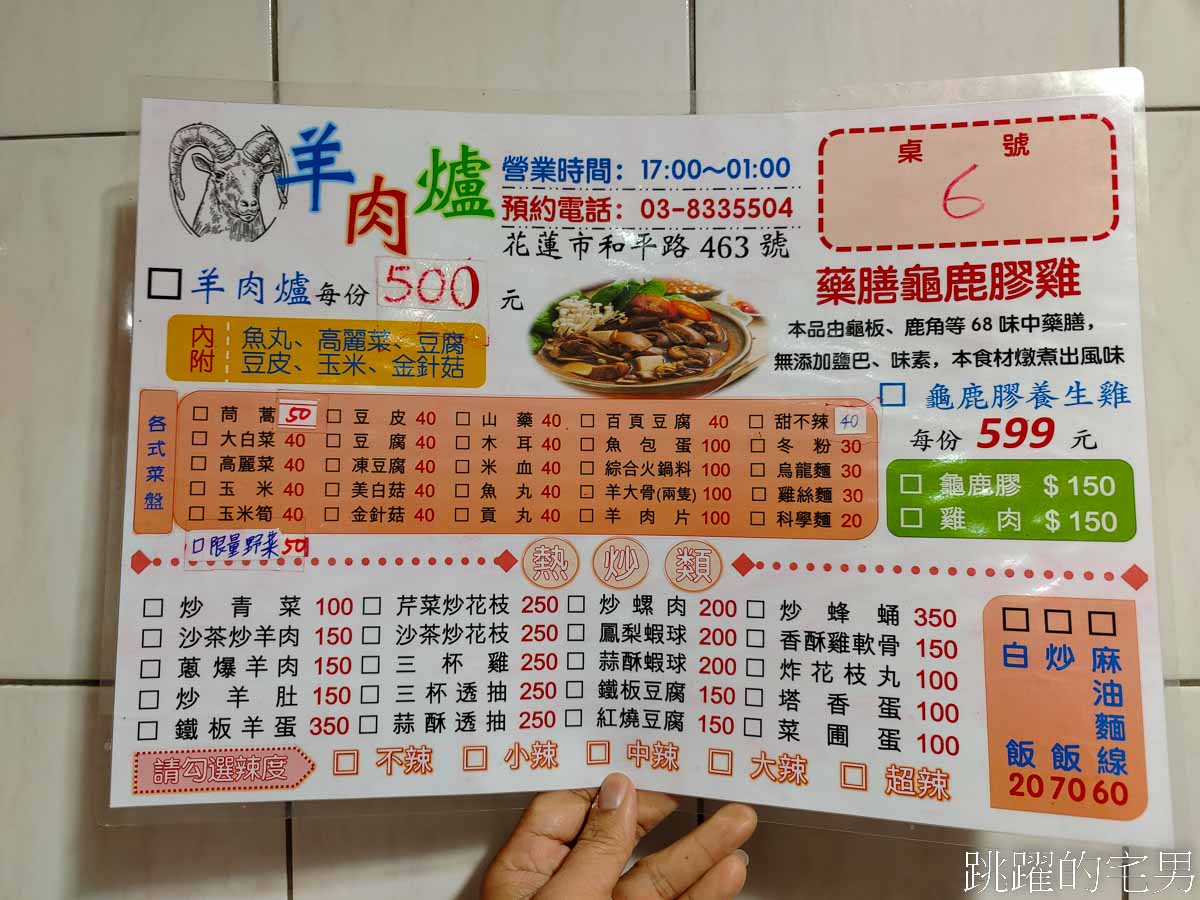 羊肉爐
營業時間：17:00～01:00
預約電話：03-8335504
花蓮市和平路 463 號
桌號
6
□ 羊肉爐 每份 500 元
內附
魚丸、高麗菜、豆腐
豆皮、玉米、金針菇
藥膳龜鹿膠雞
本品由龜板、鹿角等 68 味中藥膳，
無添加鹽巴、味素，本食材燉煮出風味
□ 龜鹿膠養生雞
每份 599 元
□ 龜鹿膠 $150
□ 雞肉 $150
各式菜盤
□ 茼蒿 50 □ 豆皮 40 □ 山藥 40 □ 百頁豆腐 40 □ 甜不辣 40
□ 大白菜 40 □ 豆腐 40 □ 木耳 40 □ 魚包蛋 100 □ 冬粉 30
□ 高麗菜 40 □ 凍豆腐 40 □ 米血 40 □ 綜合火鍋料 100 □ 烏龍麵 30
□ 玉米 40 □ 美白菇 40 □ 魚丸 40 □ 羊大骨(兩隻) 100 □ 雞絲麵 30
□ 玉米筍 40 □ 金針菇 40 □ 貢丸 40 □ 羊肉片 100 □ 科學麵 20
□ 限量野菜 50
熱炒類
□ 炒青菜 100 □ 芹菜炒花枝 250 □ 炒螺肉 200 □ 炒蜂蛹 350
□ 沙茶炒羊肉 150 □ 沙茶炒花枝 250 □ 鳳梨蝦球 200 □ 香酥雞軟骨 150
□ 蔥爆羊肉 150 □ 三杯雞 250 □ 蒜酥蝦球 200 □ 炸花枝丸 100
□ 炒羊肚 150 □ 三杯透抽 250 □ 鐵板豆腐 150 □ 塔香蛋 100
□ 鐵板羊蛋 350 □ 蒜酥透抽 250 □ 紅燒豆腐 150 □ 菜圃蛋 100
□ 白飯 20
□ 炒飯 70
□ 麻油麵線 60
請勾選辣度 □ 不辣 □ 小辣 □ 中辣 □ 大辣 □ 超辣
跳躍的宅男